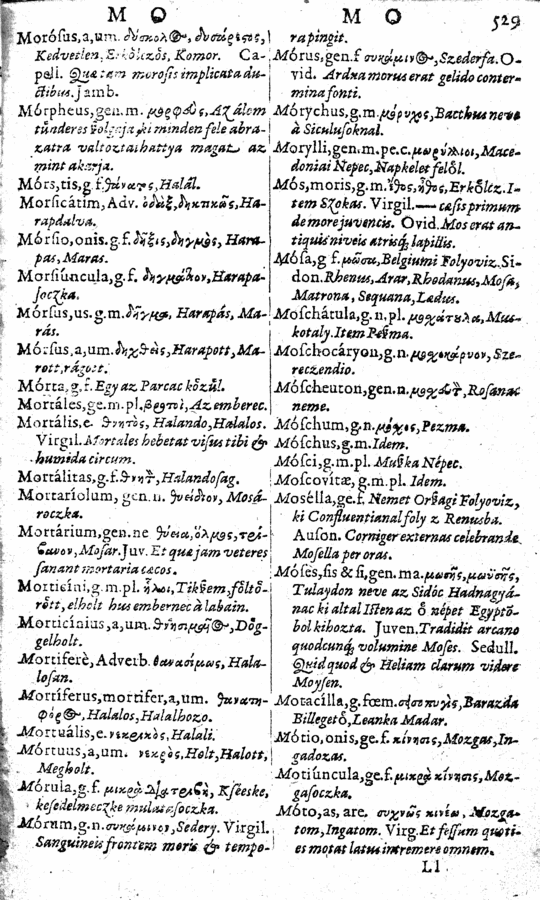 M O
M O
529
Morósus, a, um. δύσκολος, δυσάρεςος,
Kedvetlen, Erkölczös, Komor. Ca-
pell. Quæstam morosis implicata du-
ctibus. Jamb.
Mórpheus, gen. m. μορφεὺς, Az álom
ki minden fele abra-
zatra valtoztathattya magat az
mint akarja.
Mórs, tis, g. f. θάνατος, Halál.
Morsicátim, Adv. ὀδὰξ, δηκτικῶς, Ha-
rapdalva.
Mórsio, onis. g. f. δῆξις, δηγμὸς, Hara-
pas, Maras.
Morsiúncula, g. f. Harapa-
soczka.
Mórsus, us. g. m. δῆγμα, Harapás, Ma-
rás.
Mórsus, a, um. δηχθεὶς, Harapott, Ma-
rott, rágott.
Mórta, g. f. Egy az Parcac közzül.
Mortáles, ge. m. pl. βροτοὶ, Az emberec.
Mortális, e. θνητὸς, Halando, Halalos.
Virgil. Mortales hebetat visus tibi &
humida circum.
Mortálitas, g. f. Halandosag.
Mortaríolum, gen. n. Mosá-
roczka.
Mortárium, gen. ne θυεία, ὅλμος,
Mosar. Juv. Et quæ jam veteres
sanant mortaria cæcos.
Morticíni, g. m. pl. ἧλοι, Tikßem, föltö-
rött, elholt hus embernec à labain.
Morticínius, a, um. Dög-
gelholt.
Mortiferè, Adverb. θανασίμως, Hala-
losan.
Mortíferus, mortifer, a, um. θανατη-
φόρος, Halalos, Halalhozo.
Mortuális, e. νεκρικὸς, Halali.
Mórtuus, a, um. νεκρὸς, Holt, Halott,
Megholt.
Mórula, g. f. μικρὰ διατριβὴ, Kséeske,
kesedelmeczke mulatasoczka.
Mórum, g. n. συκάμινον, Sedery. Virgil.
Sanguineis frontem moris & tempo-
ra pingit.
Mórus, gen. f συκάμινος, Szederfa. O-
vid. Ardua morus erat gelido conter-
mina fonti.
Mórychus, g. m. μόρυχος, Bacchus neve
à Siculusoknal.
Morylli, gen. m. pe. c. μωρύλλιοι, Mace-
doniai Nepec, Napkelet felöl.
Mós, moris, g. m. ἔθος, ἦθος, Erköltz. I-
tem Szokas. Virgil.— cæsis primum
de more juvencis. Ovid. Mos erat an-
tiquis niveis atrisq́; lapillis.
Mósa, g f. μῶσα, Belgiumi Folyoviz. Si-
don. Rhenus, Arar, Rhodanus, Mosa,
Matrona, Sequana, Lædus.
Moschátula, g. n. pl. μοχάτουλα, Mus-
kotaly. Item Peßma.
Moschocáryon, g. n. μοχοκάρυον, Sze-
reczendio.
Móscheuton, gen. n. Rosanac
neme.
Móschum, g. n. μόχος, Pezma.
Móschus, g. m. Idem.
Mósci, g. m. pl. Mußka Népec.
Moscovítæ, g. m. pl. Idem.
Moséila, ge. f. Nemet Orßagi Folyoviz,
ki Confluentianal foly z Renusba.
Auson. Corniger externas celebrande
Mosella per oras.
Móses, sis & si, gen. ma. μωσῆς, μωϋσῆς,
Tulaydon neve az Sidóc Hadnagyá-
nac ki altal Isten az ö népet Egyptö-
bol kihozta. Juven. Tradidit arcano
quodcunq́; volumine Moses. Sedull.
Quid quod & Heliam clarum videre
Moysen.
Motacilla, g. fœm. σεισοπυγὶς, Barazda
Billegetö, Leanka Madar.
Mótio, onis, ge. f. κίνησις, Mozgas, In-
gadozas.
Motiúncula, ge. f. μικρὰ κίνησις, Moz-
gasoczka.
Móto, as, are. συχνῶς κινέω, Mozga-
tom, Ingatom. Virg. Et fessum quoti-
es motat latus intremere omnem.
Ll